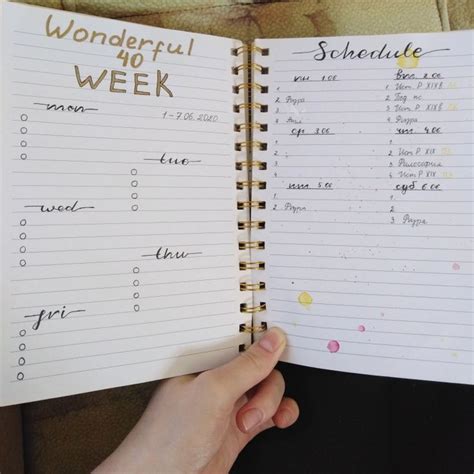 Wonderful
40
WEEK
mon
1-7.06.2020
tue
wed
thu
fri
Schedule
пн 1.06
1.
2. Физра
3.
4. Англ
вт. 2.06
1 Ист. Р XIX в
2
3 Ист. Р XIX
4 Физра
ср 3.06
1.
2.
3.
4.
чт. 4.06
1
2 Ист Р XIX
3 Философия
4 Ист Р XIX
пт. 5.06
1.
2. Физра
3.
4.
суб 6.06
1
2
3 Физра